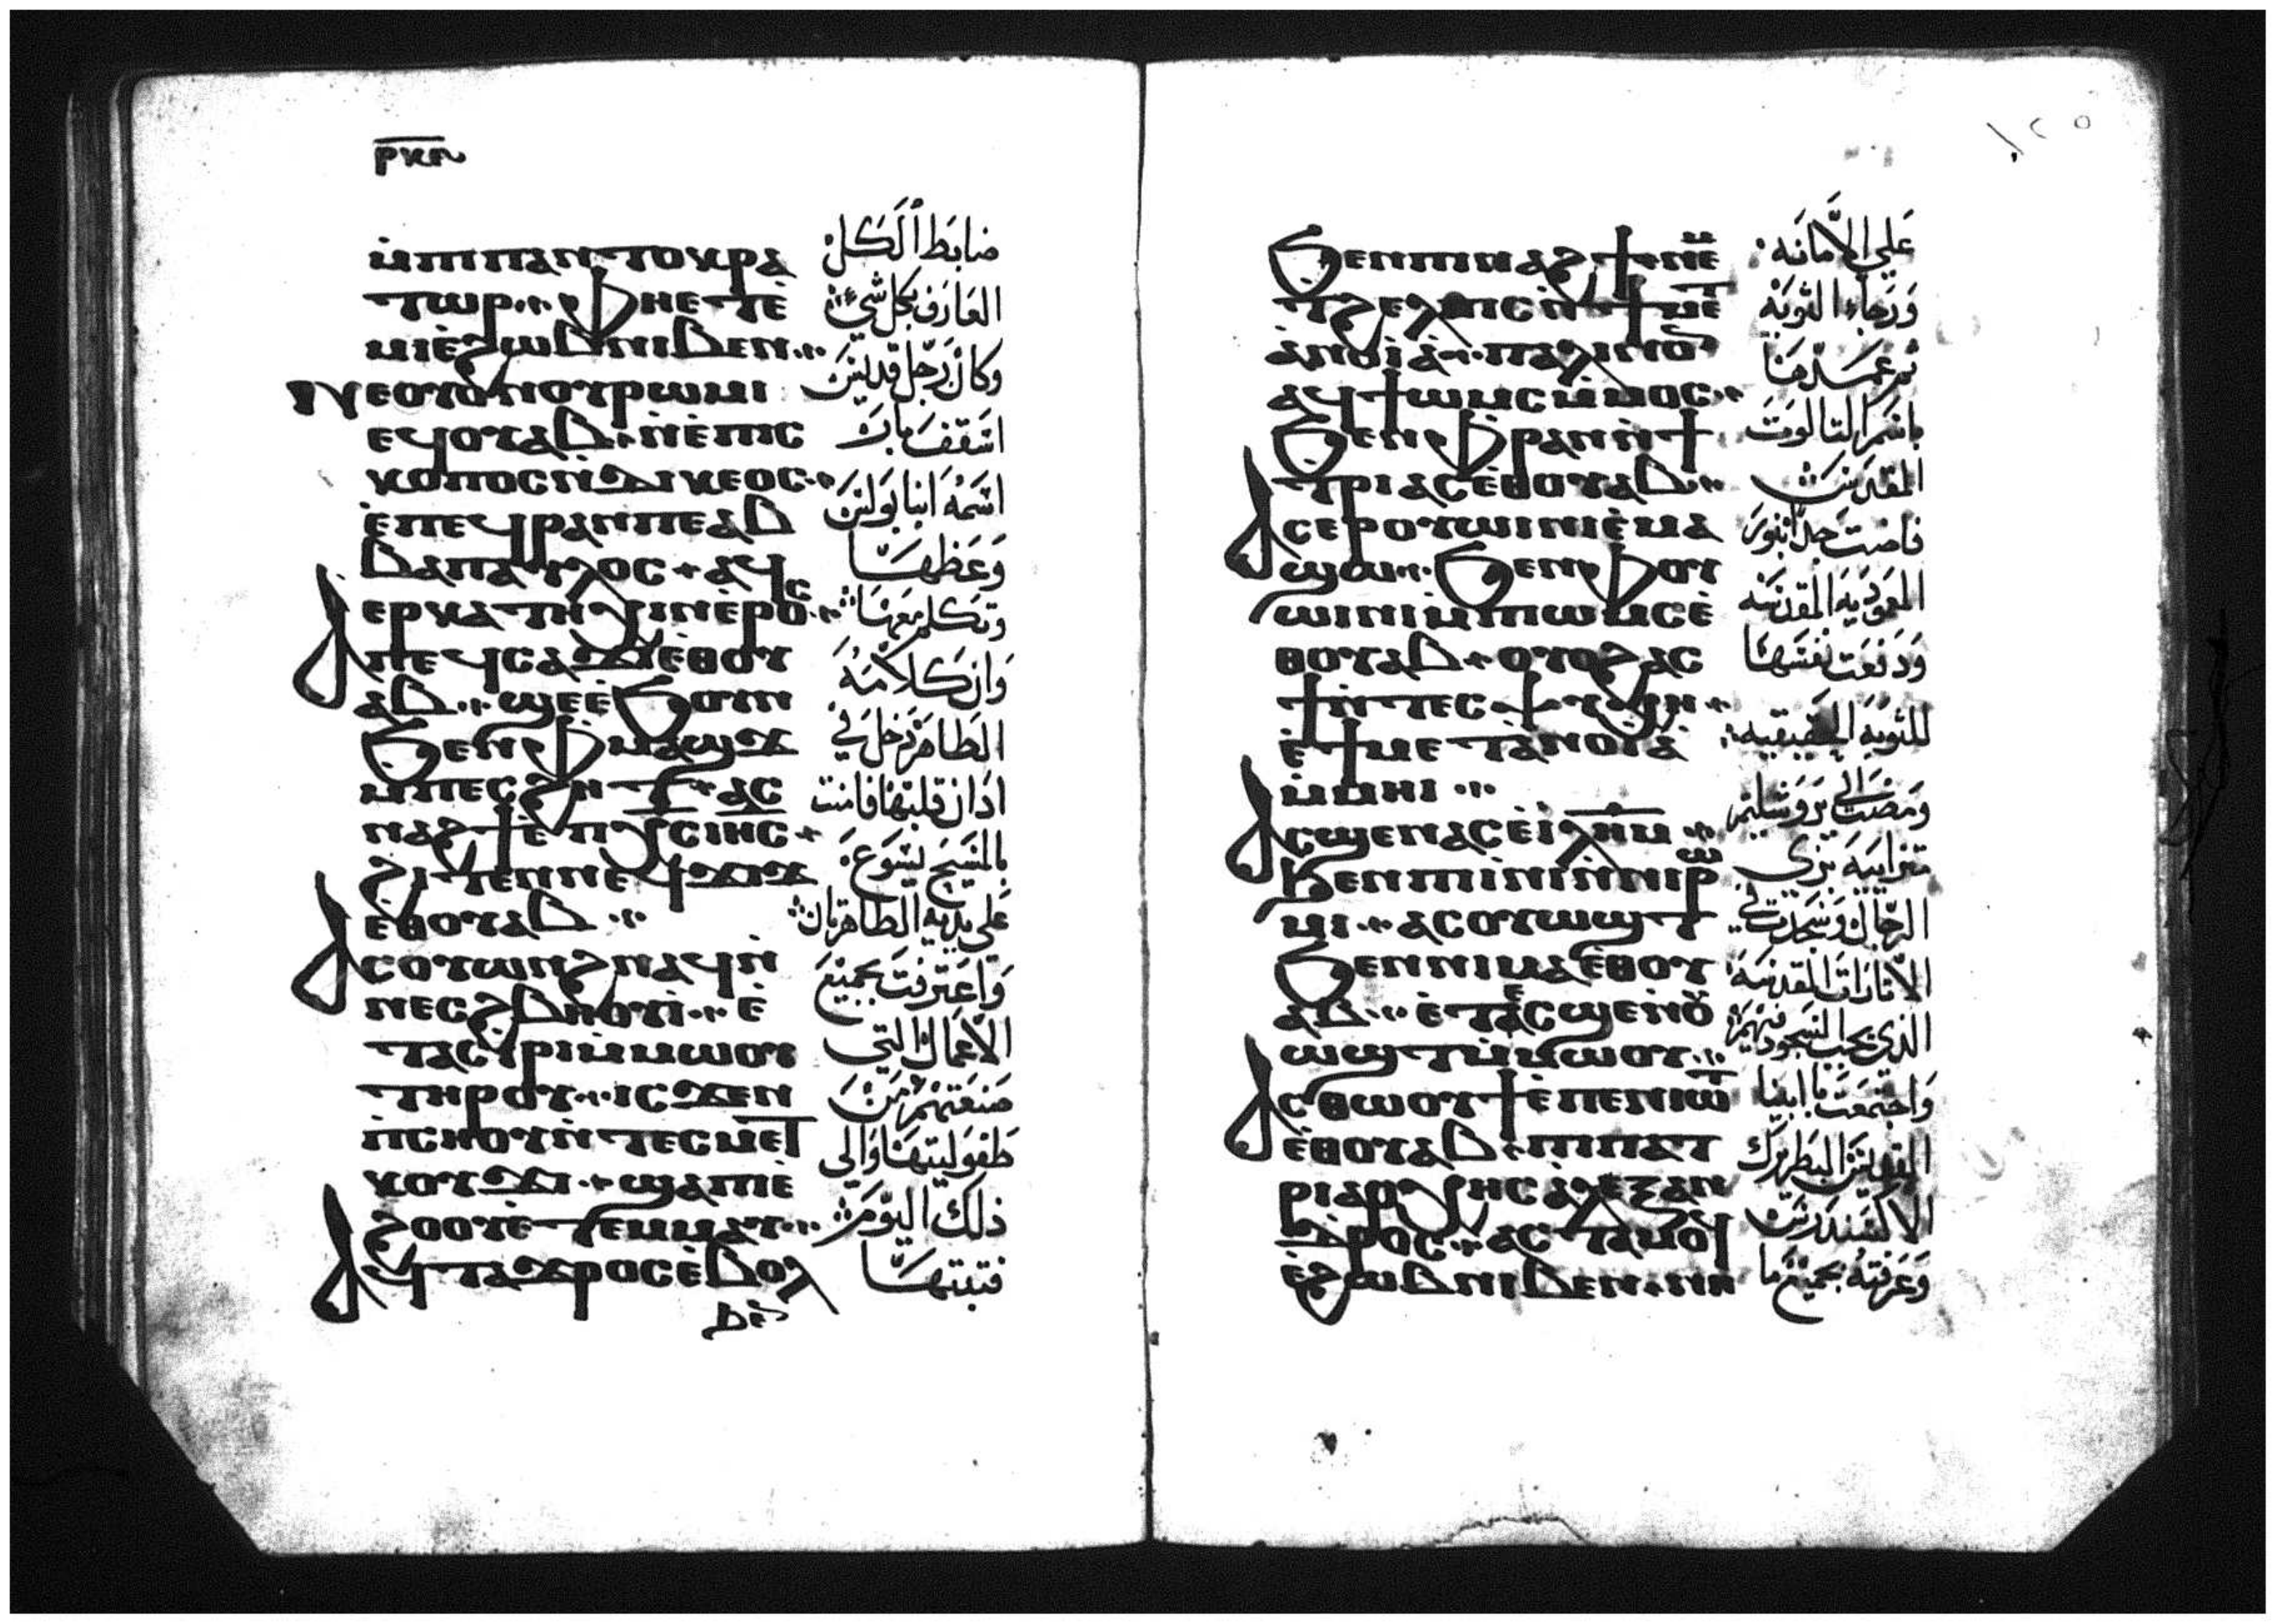 ⲣⲕⲏ
ⲙ̀ⲡⲓⲡⲁⲛⲧⲟⲕⲣⲁ
ⲧⲱⲣ ⲫⲏⲉⲧⲉ̀
ⲙⲓⲉ̀ϩⲱⲃⲛⲓⲃⲉⲛ
ⲛⲉⲟⲩⲟⲛⲟⲩⲣⲱⲙⲓ
ⲉϥⲟⲩⲁⲃ ⲛ̀ⲉ̀ⲡⲓⲥ
ⲕⲟⲡⲟⲥⲛ̀ⲇⲓⲕⲉⲟⲥ
ⲉ̀ⲡⲉϥⲣⲁⲛⲡⲉⲁⲃ
ⲃⲁⲡⲁⲩⲗⲟⲥ ⲁϥ
ⲉⲣⲕⲁⲧⲏⲭⲓⲛⲉ̀ⲣⲟⲥ
ⲁⲡⲉϥⲥⲁϫⲓⲉⲑⲟⲩ
ⲁⲃ ϣⲉⲉ̀ϧⲟⲩⲛ
ϧⲉⲛⲫⲙⲁϣϫ
ⲙ̀ⲡⲉⲥϩⲏⲧ ⲁⲥ
ⲛⲁϩϯⲉ̀ⲡⲭⲥⲓⲏⲥ
ϩⲓⲧⲉⲛⲛⲉϥϫⲓϫ
ⲉⲑⲟⲩⲁⲃ
ⲁⲥⲟⲩⲱⲛϩⲛⲁϥⲛ̀
ⲛⲉⲥϩⲃⲏⲟⲩⲓ̀ ⲉ̀
ⲧⲁⲥⲓⲣⲓⲙ̀ⲙⲱⲟⲩ
ⲧⲏⲣⲟⲩ ⲓⲥϫⲉⲛ
ⲡ̀ⲥⲏⲟⲩⲛ̀ⲧⲉⲥⲙⲉⲧ
ⲕⲟⲩϫⲓ ϣⲁⲡⲓⲉ̀
ϩⲟⲟⲩⲉ̀ⲧⲉⲙⲙⲁⲩ
ⲁϥⲧⲁϫⲣⲟⲥⲉ̀ⲃⲟⲗ
ضابط الكل
العارف بكل شي
وكان رجل قديس
اسقف بار
اسمه انبا بولس
وعظها
وتكلم معها
وان كلامه
الطاهر دخل في
اذان قلبها فامنت
بالمسيح يسوع
علي يديه الطاهرتان
واعترفت بجميع
الاعمال التي
صنعتهم من
طفوليتها والي
ذلك اليوم
فثبتها
١٢٥
ϧⲉⲛⲡⲓⲛⲁϩϯⲛⲉⲙ
ⲧϩⲉⲗⲡⲓⲥⲛ̀ϯⲙⲉ
ⲧⲁⲛⲟⲓⲁ̀ ⲡⲁⲗⲓⲛⲟⲛ
ⲁϥϯⲱⲙⲥⲙ̀ⲙⲟⲥ
ϧⲉⲛⲫⲣⲁⲛⲛ̀ϯ
ⲧⲣⲓⲁⲥⲉ̀ⲑⲟⲩⲁⲃ
ⲁⲥⲉⲣⲟⲩⲱⲓⲛⲓⲉ̀ⲙⲁ
ϣⲱ ϧⲉⲛⲫⲟⲩ
ⲱⲓⲛⲓⲙ̀ⲡⲓⲱⲙⲥⲉ̀
ⲑⲟⲩⲁⲃ ⲟⲩⲟϩⲁⲥ
ϯⲛ̀ⲧⲉⲥⲯⲩⲭⲏ
ⲉ̀ϯⲙⲉⲧⲁⲛⲟⲓⲁ̀
ⲙ̀ⲙⲏⲓ
ⲁⲥϣⲉⲛⲁⲥⲉ̀ⲓ̀ⲗⲏⲙ
ϧⲉⲛⲡⲓⲛⲓⲛ̀ⲛⲓⲣⲱ
ⲙⲓ ⲁⲥⲟⲩⲱϣⲧ
ϧⲉⲛⲛⲓⲙⲁⲉⲑⲟⲩ
ⲁⲃ ⲉ̀ⲧⲉⲥϣⲉⲛⲟⲩ
ⲱϣⲧⲙ̀ⲙⲱⲟⲩ
ⲁⲥⲑⲱⲟⲩϯⲉ̀ⲡⲉⲛⲓⲱⲧ
ⲉ̀ⲑⲟⲩⲁⲃ ⲡⲓⲡⲁⲧ
ⲣⲓⲁⲣⲭⲏⲥⲁ̀ⲗⲉⲝⲁⲛ
ⲇⲣⲟⲥ ⲁⲥⲧⲁⲙⲟϥ
ⲉ̀ϩⲱⲃⲛⲓⲃⲉⲛ ⲛⲏ
علي الامانة
ورجاء التوبة
ثم عمدها
باسم التالوت
المقدس
فاضت جدا بنور
المعمودية المقدسة
ودفعت نفسها
للتوبة الحقيقيه
ومضت الي يروشليم
متزاييه بزي
الرجال وسجدت في
الاثارات المقدسة
الذي يجب السجود فيهم
واجتمعت بابينا
القديس البطريرك
الاكسندرس
وعرفته بجميع ما